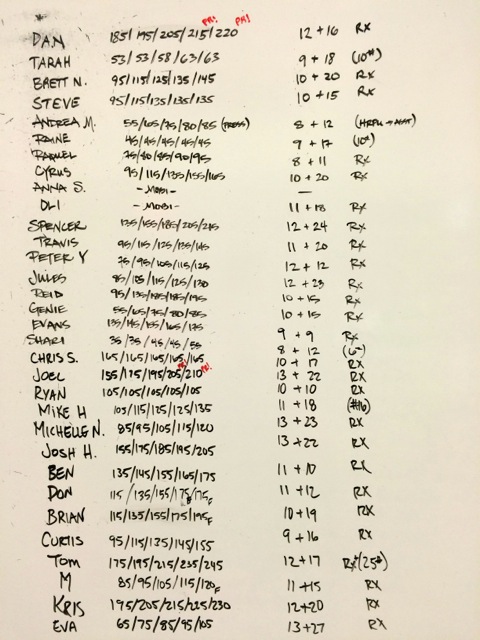 PR! PR!
DAN 185/195/205/215/220 12+16 RX
TARAH 53/53/58/63/63 9+18 (10#)
BRETT N. 95/115/125/135/145 10+20 RX
STEVE 95/115/135/135/135 10+15 RX
ANDREA M. 55/65/75/80/85 (PRESS) 8+12
RAINE 45/45/45/45/45 9+17
RAQUEL 75/80/85/90/95 8+11 RX
CYRUS 95/115/135/155/165 10+20 RX
ANNA S. -MOBI- —
OLI -MOBI- 11+18 RX
SPENCER 135/155/185/205/215 12+24 RX
TRAVIS 95/115/125/135/145 11+20 RX
PETER Y 75/95/105/115/125 12+12 RX
JULES 85/105/115/125/130 12+23 RX
REID 95/135/185/185/195 10+15 RX
GENIE 55/65/75/80/85 10+15 RX
EVANS 135/145/155/165/175
SHARI 35/35/45/45/55 9+9 RX
CHRIS S. 165/165/165/165/165 8+12
PR! PR!
JOEL 155/175/195/205/210 10+17 RX
RYAN 105/105/105/105/105 13+22 RX
10+10 RX
MIKE H 105/115/125/125/135 11+18 (#16)
MICHELLE N. 85/95/105/115/120 13+23 RX
JOSH H. 155/175/185/195/205 13+22 RX
BEN 135/145/155/165/175 11+10 RX
DON 115/135/155/175/175F 11+12 RX
BRIAN 115/135/155/175/195F 10+19 RX
CURTIS 95/115/135/145/155 9+16 RX
TOM 175/195/215/235/245 12+17 RX(25#)
M 85/95/105/115/120F 11+15 RX
KRIS 195/205/215/225/230 12+20 RX
EVA 65/75/85/95/105 13+27 RX